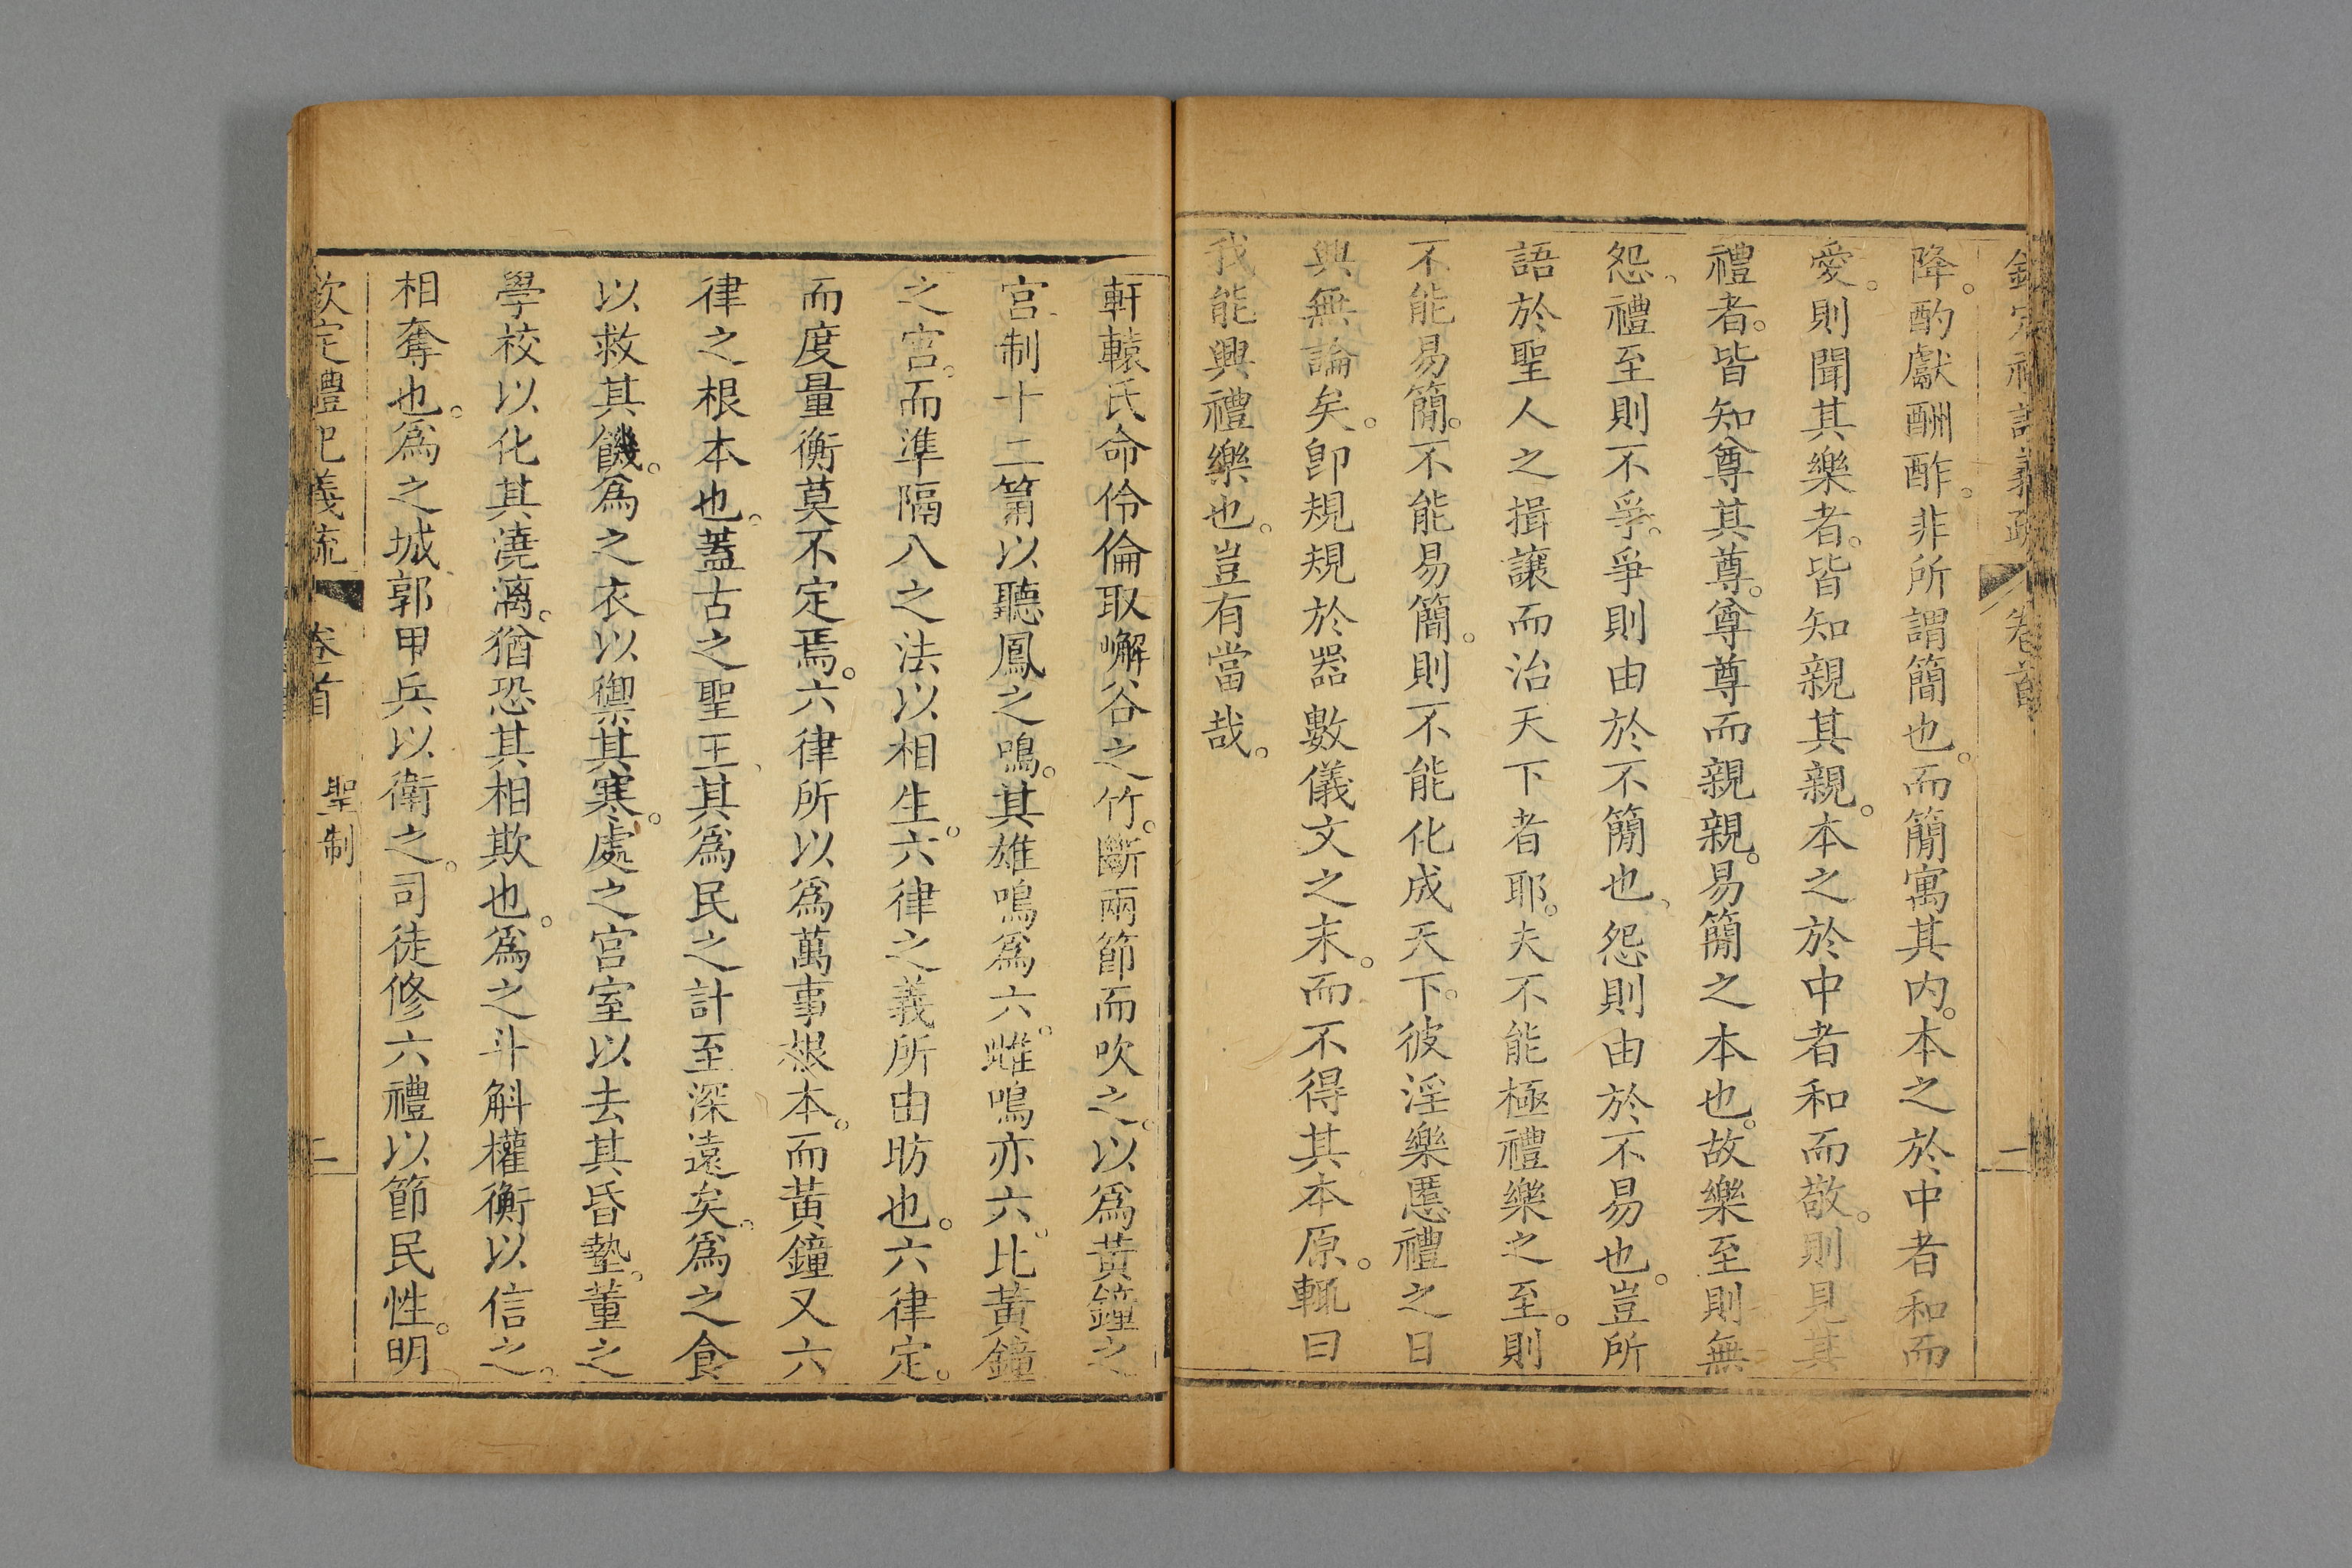 欽定禮記義疏 卷首 二
降。酌獻酬酢。非所謂簡也。而簡寓其内。本之於中者和而
愛。則聞其樂者。皆知親其親。本之於中者和而敬。則見其
禮者。皆知尊其尊。尊尊而親親。易簡之本也。故樂至則無
怨、禮至則不爭。爭則由於不簡也、怨則由於不易也。豈所
語於聖人之揖讓而治天下者耶。夫不能極禮樂之至。則
不能易簡。不能易簡。則不能化成天下。彼淫樂慝禮之日
興無論矣。卽規規於器數儀文之末。而不得其本原。輒曰
我能興禮樂也。豈有當哉。
軒轅氏命伶倫取嶰谷之竹。斷兩節而吹之。以爲黃鐘之
宫、制十二筩以聽鳳之鳴。其雄鳴爲六。雌鳴亦六。比黃鐘
之宫。而準隔八之法以相生。六律之義所由昉也。六律定。
而度量衡莫不定焉。六律所以爲萬事根本。而黃鐘又六
律之根本也。蓋古之聖王、其爲民之計至深遠矣。爲之食
以救其饑。爲之衣以禦其寒。處之宫室以去其昏墊。董之
學校以化其澆漓。猶恐其相欺也。爲之斗斛權衡以信之。
相奪也。爲之城郭甲兵以衛之。司徒修六禮以節民性。明
欽定禮記義疏 卷首 聖制 二